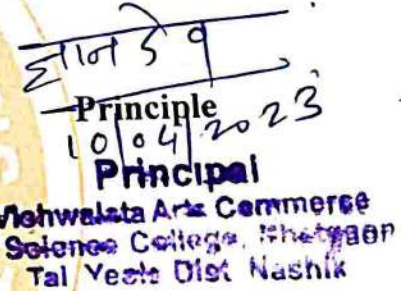 ज्ञानदेव
Principle
10/04/2023
Principal
Vishwalata Arts Commerce
Science College, Bhatgaon
Tal Yeola Dist Nashik